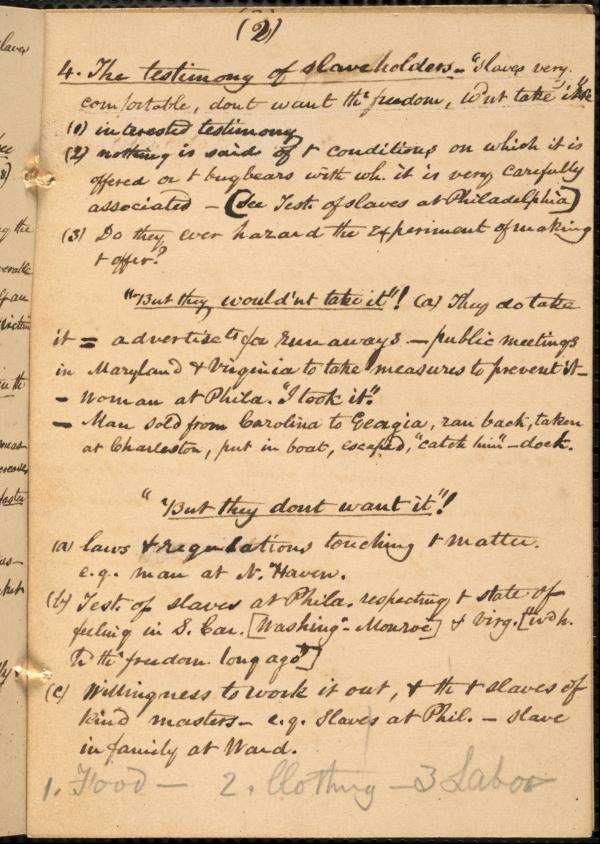 (2)
4. The testimony of slaveholders - "Slaves very
comfortable, dont want thr freedom, wd'nt take it"
(1) interested testimony
(2) nothing is said of t conditions on which it is
offered or t bugbears with wh. it is very carefully
associated - (See Test. of slaves at Philadelphia)
(3) Do they ever hazard the experiment of making
t offer?
"But they would'nt take it"! (a) They do take
it = advertisets for runaways - public meetings
in Maryland & Virginia to take measures to prevent it -
- Woman at Phila. "I took it".
- Man sold from Carolina to Georgia, ran back, taken
at Charleston, put in boat, escaped, "catch him" - dock.
"But they dont want it"!
(a) laws & regulations touching t matter.
e.g. man at N. Haven.
(b) Test. of slaves at Phila. respecting t state of
feeling in S. Car. [Washing - Monroe] & Virg. ["wd h.
thr freedom long ago"]
(c) Willingness to work it out, & tht t slaves of
kind masters - e.g. Slaves at Phil. - slave
in family at Ward.
1. Food - 2. Clothing - 3 Labor
slaves
g the
in th
faster